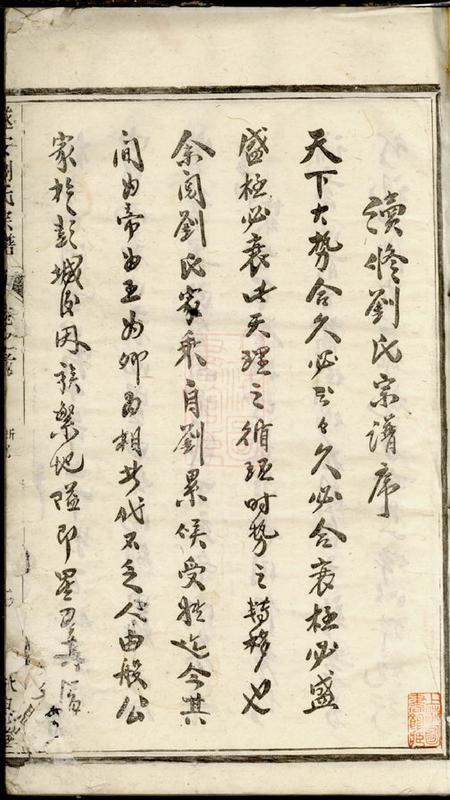 讀修劉氏宗譜序
天下大勢合久必分々久必合衰極必盛
盛極必衰此天理之循環時勢之轉移也
余閱劉氏家乘自劉累侯受姓迄今其
间为帝为王为卿为相者代不乏人由殷公
家於彭城后因族繁地隘即星
劉氏宗譜